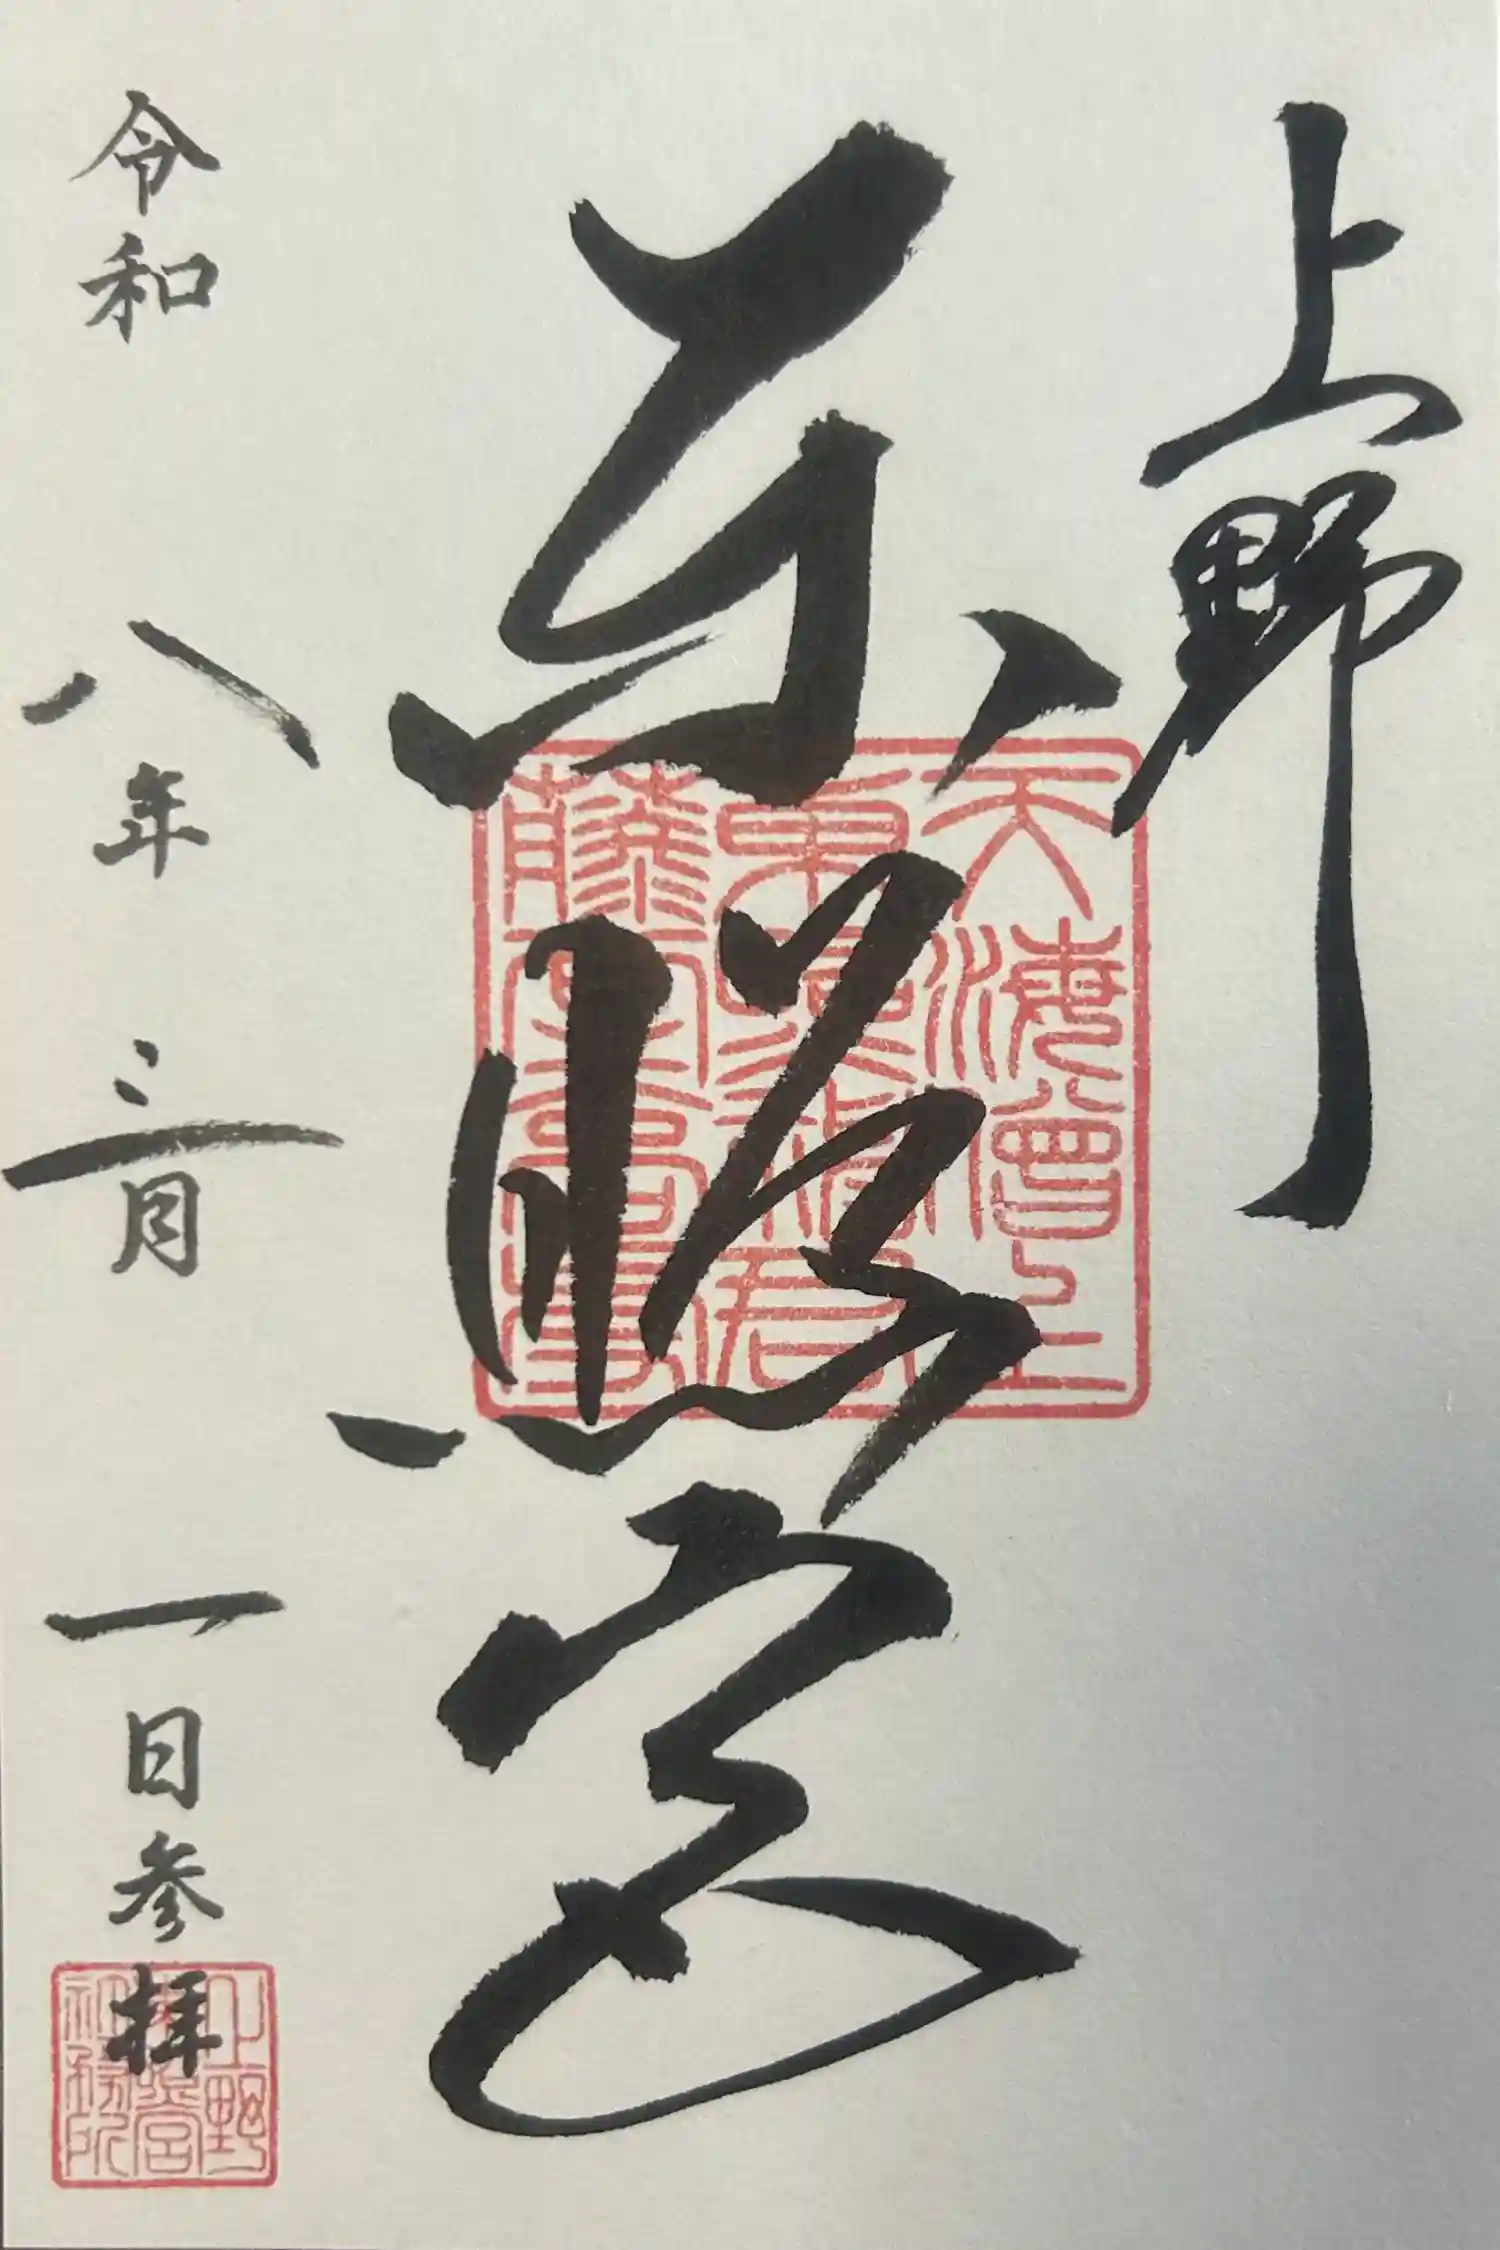 上野
東照宮
令和八年三月一日参拝
天海僧上
東照神君
藤堂高虎
上野
東照宮
社務所